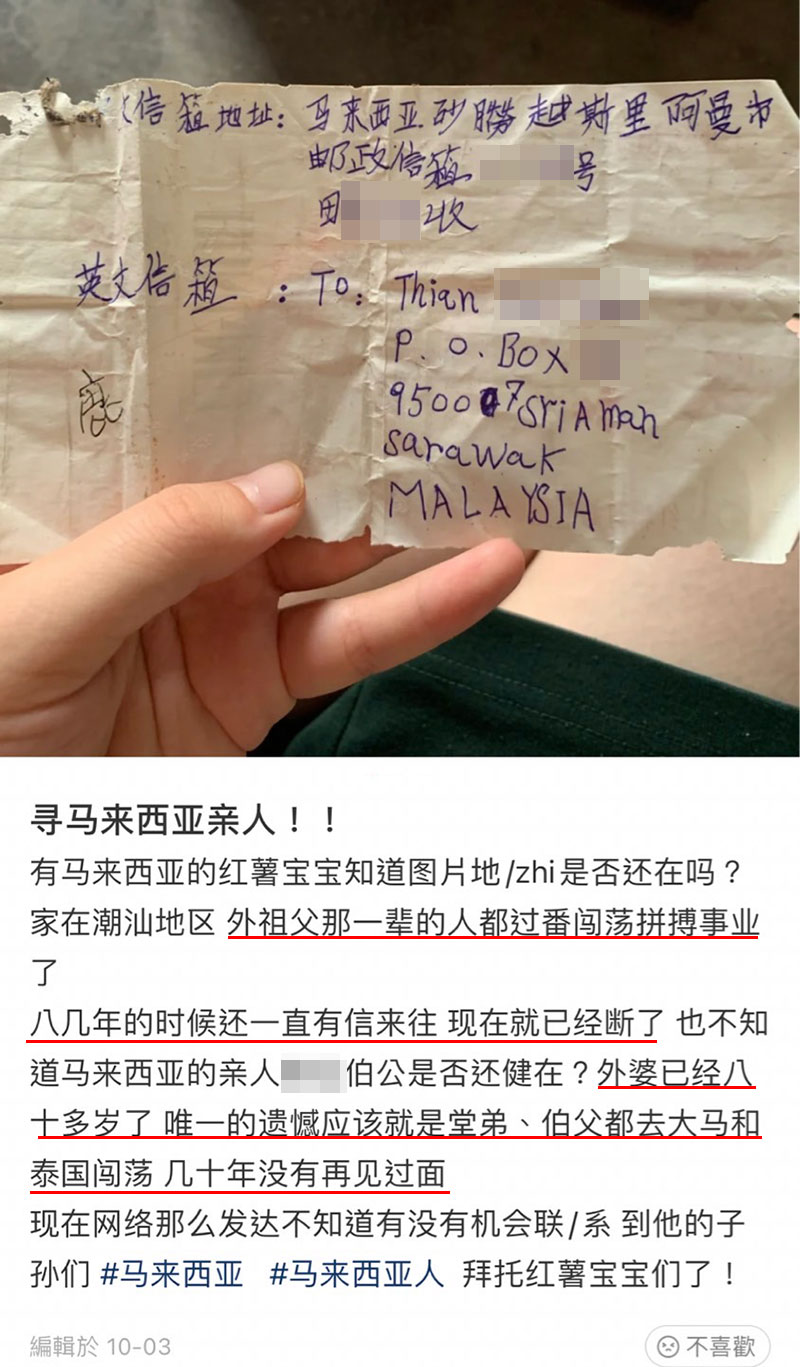 文信箱地址：马来西亚砂朥越斯里阿曼市
邮政信箱 号
田 收
英文信箱：To: Thian
P.O.Box
95007 Sri Aman
sarawak
MALAYSIA
鹿
寻马来西亚亲人！！
有马来西亚的红薯宝宝知道图片地/zhi是否还在吗？
家在潮汕地区 外祖父那一辈的人都过番闯荡拼搏事业
了
八几年的时候还一直有信来往 现在就已经断了 也不知
道马来西亚的亲人 伯公是否还健在？外婆已经八
十多岁了 唯一的遗憾应该就是堂弟、伯父都去大马和
泰国闯荡 几十年没有再见过面
现在网络那么发达不知道有没有机会联/系 到他的子
孙们 #马来西亚 #马来西亚人 拜托红薯宝宝们了！
編輯於 10-03
不喜歡